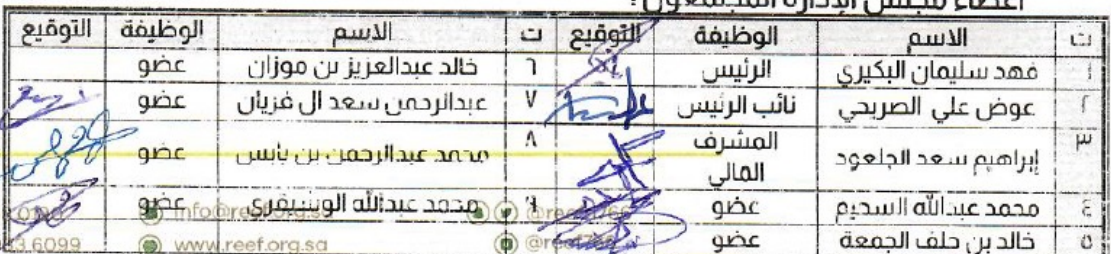 أعضاء مجلس الإدارة المجتمعون:
ت الاسم الوظيفة التوقيع ت الاسم الوظيفة التوقيع
١ فهد سليمان البكيري الرئيس ٦ خالد عبدالعزيز بن موزان عضو
٢ عوض علي الصريحي نائب الرئيس ٧ عبدالرحمن سعد ال غزيان عضو
٣ إبراهيم سعد الجلعود المشرف المالي ٨ محمد عبدالرحمن بن يابس عضو
٤ محمد عبدالله السحيم عضو ٩ محمد عبدالله عضو
٥ خالد بن خلف الجمعة عضو
info@reef.org.sa
www.reef.org.sa
6099